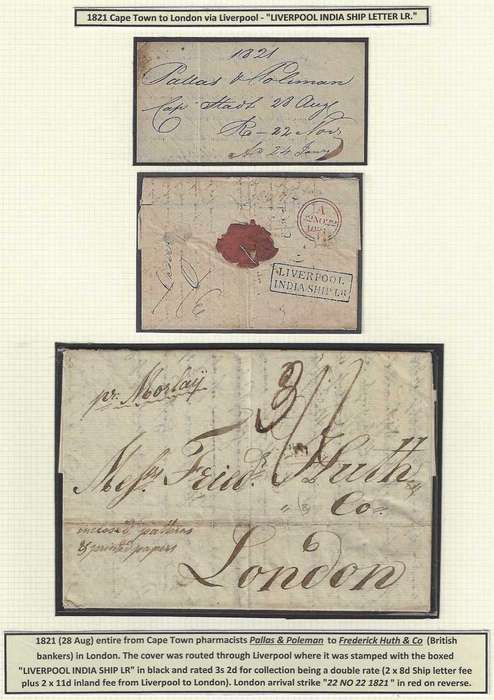 1821 Cape Town to London via Liverpool - "LIVERPOOL INDIA SHIP LETTER LR."
1821
Pallas & Poleman
Cap Stadt 28 Aug
R - 22 Nov
A 24
A
22 NO 22
1821
LIVERPOOL
INDIA SHIP LR
pr. Morlay
3/
Messrs Fried. Huth
& Co.
inclosed patterns
& printed papers
London
1821 (28 Aug) entire from Cape Town pharmacists Pallas & Poleman to Frederick Huth & Co (British
bankers) in London. The cover was routed through Liverpool where it was stamped with the boxed
"LIVERPOOL INDIA SHIP LR" in black and rated 3s 2d for collection being a double rate (2 x 8d Ship letter fee
plus 2 x 11d inland fee from Liverpool to London). London arrival strike "22 NO 22 1821" in red on reverse.